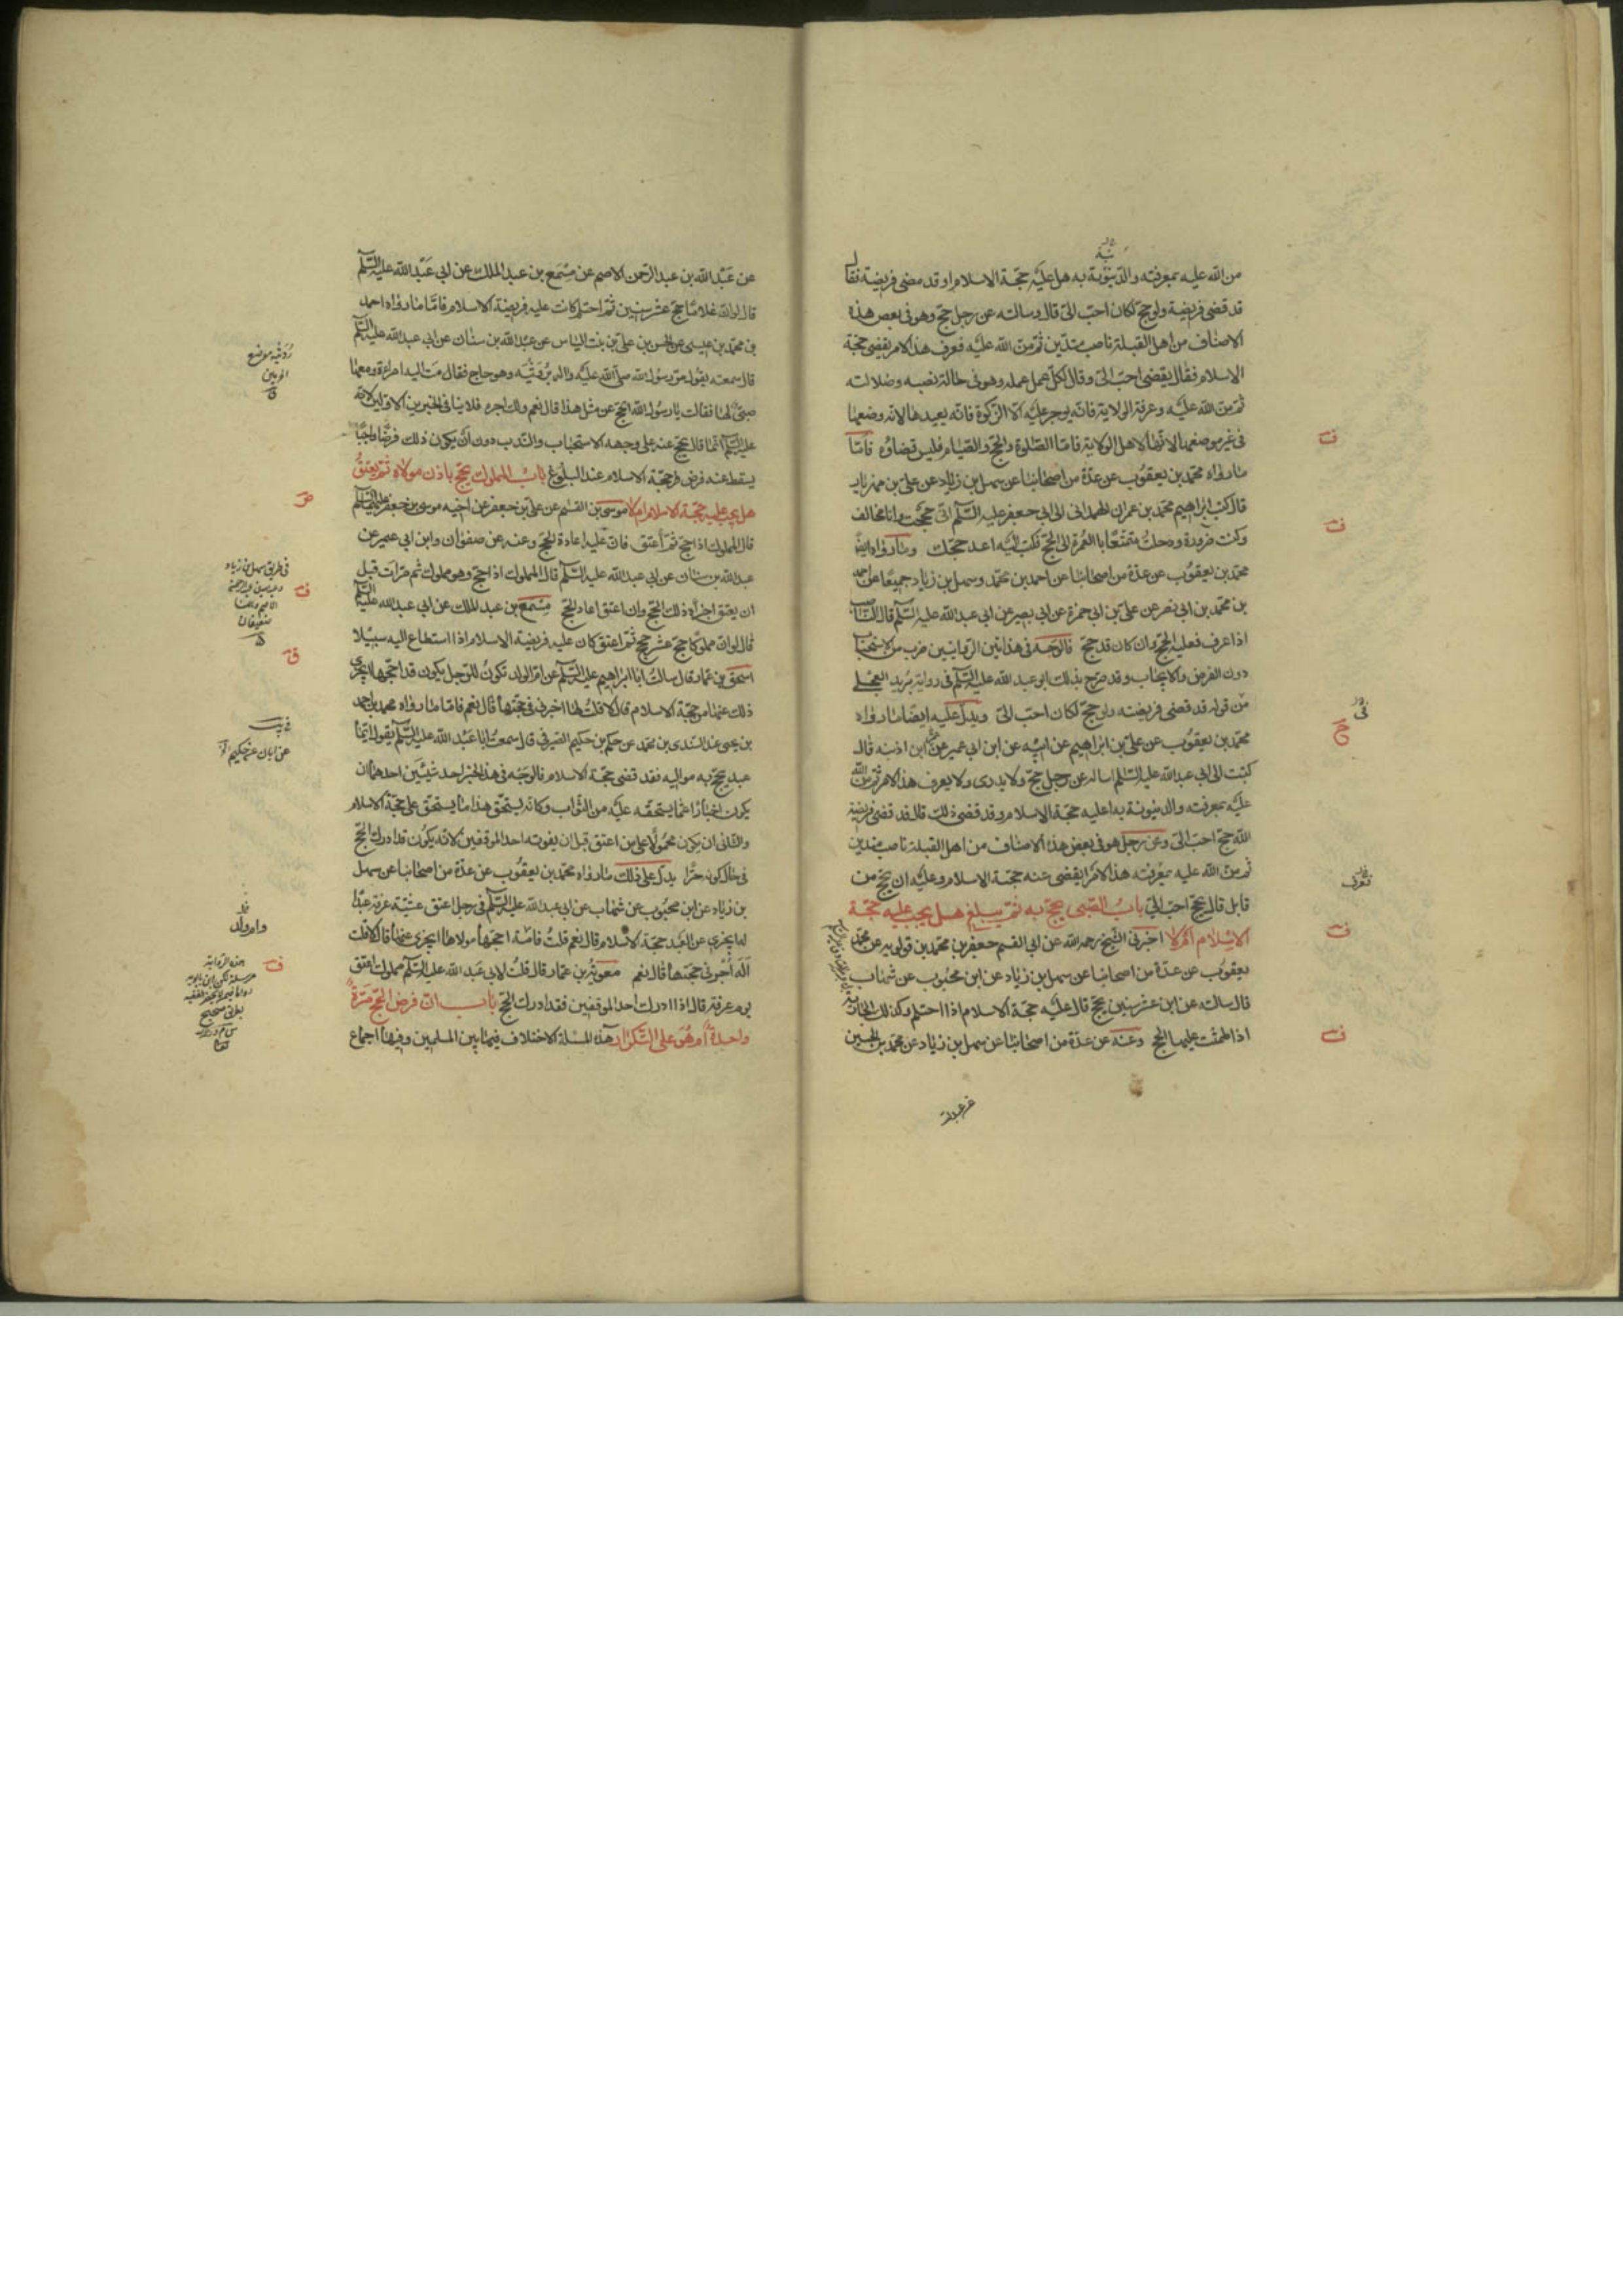 من الله عليه بمعرفته والدينونة به هل عليه حجّة الاسلام او قد مضى فريضته فقال
قد قضى فريضة ولو حج لكان احبّ الىّ قال وسالته عن رجل حج وهو فى بعض هذه
الاصناف من اهل القبلة ناصب متدين ثم منّ الله عليه فعرف هذا الامر يقضى حجّة
الاسلام فقال يقضى احبّ الىّ وقال كل عمل عمله وهو فى حالة نصبه وضلالته
ثم منّ الله عليه وعرفه الولاية فانه يوجر عليه الّا الزكوة فانه يعيدها لانه وضعها
فى غير موضعها لانها لاهل الولاية فامّا الصّلوة والحج والصّيام فليس قضاؤه فامّا
مارواه محمّد بن يعقوب عن عدّة من اصحابنا عن سهل بن زياد عن علىّ بن مهزيار
قال كتب ابراهيم محمّد بن عمران الهمدانى الى ابى جعفر عليه السّلم انّى حججت وانا مخالف
وكنت ضرورة ودخلت متمتّعا بالعمرة الى الحجّ فكتب اليه اعد حجك ومارواه ايضا
محمّد بن يعقوب عن عدّة من اصحابنا عن احمد بن محمّد وسهل بن زياد جميعًا عن احمد
بن محمّد بن ابى نصر عن علىّ بن ابى حمزة عن ابى بصير عن ابى عبد الله عليه السّلم قال الناصب
اذا عرف فعليه الحجّ وان كان قد حجّ فالوجه فى هذين الروايتين ضرب من الاستحباب
دون الفرض والايجاب وقد صرّح بذلك ابو عبد الله عليه السّلم فى رواية بُريد العجلى
من قوله قد قضى فريضته ولو حجّ لكان احبّ الىّ ويدلّ عليه ايضا مارواه
محمّد بن يعقوب عن علىّ بن ابراهيم عن ابيه عن ابن ابى عمير عن ابن اذينه قال
كتبت الى ابى عبد الله عليه السّلم اساله عن رجل حجّ ولا يدرى ولا يعرف هذا الامر ثم من الله
عليه بمعرفته والدينونة به اعليه حجّة الاسلام وقد قضى ذلك قال قد قضى فريضة
الله حجّ احبّ الىّ وعن رجل هو فى بعض هذه الاصناف من اهل القبلة ناصب متدين
ثم منّ الله عليه بمعرفته هذا الامر ايقضى عنه حجّة الاسلام وعليه ان يحج من
قابل قال يحجّ احبّ الىّ باب الصّبى يحجّ به ثم يبلغ هل يجب عليه حجّة
الاسلام ام لا اخبرنى الشيخ رحمه الله عن ابى القسم جعفر بن محمّد بن قولويه عن محمّد
يعقوب عن عدّة من اصحابنا عن سهل بن زياد عن ابن محبوب عن شهاب
قال سالته عن ابن عشر سنين يحجّ قال عليه حجّة الاسلام اذا احتلم وكذلك الجارية
اذا طمثت عليها الحج وعنه عن عدّة من اصحابنا عن سهل بن زياد عن محمّد بن الحسين
عن عبد الله بن عبد الرّحمن الاصم عن مِسمَع بن عبد الملك عن ابى عبد الله عليه السّلم
قال لو انّ غلامًا حجّ عشر سنين ثمّ احتلم كانت عليه فريضة الاسلام فامّا مارواه احمد
بن محمّد بن عيسى عن الحسن بن علىّ بن بنت الياس عن عبد الله بن سنان عن ابى عبد الله عليه السّلم
قال سمعته يقول مرّ رسول الله صلّى الله عليه واله برُوَيثَه وهو حاج فقال مّت اليه امراة ومعها
صبىّ لها فقالت يا رسول الله ايحجّ عن مثل هذا قال نعم ولك اجره فلا ينافى الخبرين الاولين لانّه
عليه السّلم انّما قال يحجّ عنه على وجهه الاستحباب والنّدب دون ان يكون ذلك فرضًا واجبًا
يسقط عنه فرض حجّة الاسلام عند البلوغ باب المملوك يحجّ باذن مولاه ثم يعتق
هل يجب عليه حجّة الاسلام ام لا موسى بن القسم عن علىّ بن جعفر عن اخيه موسى بن جعفر عليهما السّلم
قال المملوك اذا حجّ ثمّ أُعتق فانّ عليه اعادة الحجّ وعنه عن صفوان وابن ابى عمير عن
عبد الله بن سنان عن ابى عبد الله عليه السّلم قال المملوك اذا حجّ وهو مملوك ثم مات قبل
ان يعتق اجزاه ذلك الحجّ وان اعتق اعاد الحجّ مِسمَع بن عبد الملك عن ابى عبد الله عليه السّلم
قال لو انّ مملوكا حجّ عشر حجج ثمّ اعتق كان عليه فريضة الاسلام اذا استطاع اليه سبيلا
اسحق بن عمّار قال سالت ابا ابراهيم عليه السّلم عن امّ الولد تكون للرّجل يكون قد احجّها ايجزى
ذلك عنها من حجّة الاسلام قال لا قلتُ لها اجر فى حجّتها قال نعم فامّا مارواه محمد بن احمد
بن يحيى عن السّندى بن محمّد عن حكم بن حكيم الصّيرفى قال سمعتُ ابا عبد الله عليه السّلم يقول ايّما
عبد يحجّ به مواليه فقد قضى حجّة الاسلام فالوجه فى هذا الخبر احد شيئين احدهما ان
يكون اخبارًا عمّا يستحقّه عليه من الثّواب وكانّه يستحقّ هذا ما يستحقّ على حجّة الاسلام
والثّانى ان يكون محمولًا على من اعتق قبل ان يفوته احد الموقفين لانه يكون قد ادرك الحجّ
فى حال كونه حرًّا يدلّ على ذلك مارواه محمّد بن يعقوب عن عدّة من اصحابنا عن سهل
بن زياد عن ابن محبوب عن شهاب عن ابى عبد الله عليه السّلم فى رجل اعتق عشيّة عرفة عبدًا
له ايجزى عن العبد حجّة الاسلام قال نعم قلت فامّ ولد احجّها مولاها ايجزى عنها قال لا قلت
أله أجر فى حجّتها قال نعم معويّة بن عمّار قال قلتُ لابى عبد الله عليه السّلم مملوك اعتق
يوم عرفة قال اذا ادرك احد الموقفين فقد ادرك الحجّ باب انّ فرض الحجّ مَرّةٌ
واحدةٌ ام هُوَ على التّكرار هذه المسئلة لا اختلاف فيها بين المسلمين وفيها اجماع